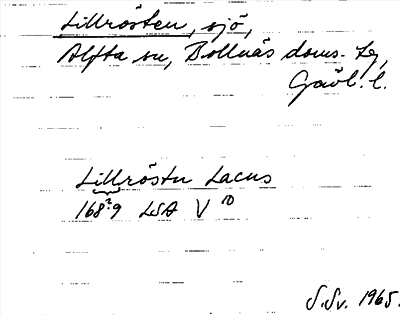 Lillrösten, sjö,
Alfta sn, Bollnäs doms. tg,
Gävl. l.
Lillröstn Lacus
168?9 LSA V 10
S.Sv. 1965.